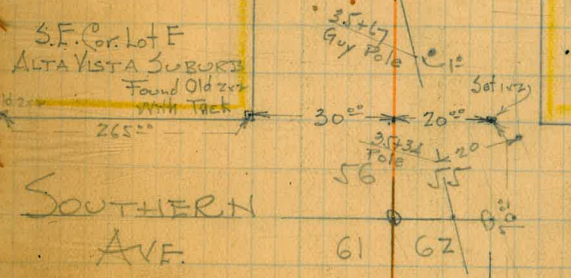 S.E. Cor. Lot E
ALTA VISTA SUBURB
Found Old 2x2
With Tack
Old 2x2
265⁰⁰
3.5+67
Guy Pole
1⁰
Set 1x2
30⁰⁰
20⁰⁰
Pole
20
56
55
SOUTHERN
AVE.
61
62